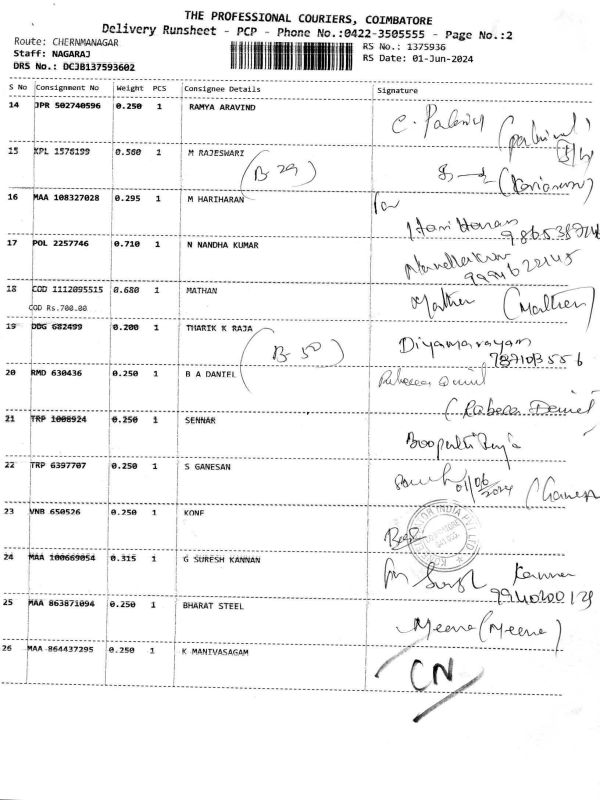 THE PROFESSIONAL COURIERS, COIMBATORE
Delivery Runsheet - PCP - Phone No.:0422-3505555 - Page No.:2
Route: CHERNMANAGAR
Staff: NAGARAJ
DRS No.: DCJB137593602
RS No.: 1375936
RS Date: 01-Jun-2024
S No Consignment No Weight PCS Consignee Details Signature
14 JPR 502740596 0.250 1 RAMYA ARAVIND
15 KPL 1576199 0.560 1 M RAJESWARI
(B-29)
16 MAA 108327028 0.295 1 M HARIHARAN
Hariharan
17 POL 2257746 0.710 1 N NANDHA KUMAR
Nandhakumar
18 COD 1112095515 0.680 1 MATHAN
COD Rs.700.00
19 DDG 682499 0.200 1 THARIK K RAJA
(B-50)
Diyamarayam
20 RMD 630436 0.250 1 B A DANIEL
21 TRP 1008924 0.250 1 SENNAR
22 TRP 6397707 0.250 1 S GANESAN
01/06/2024 (Ganesa
23 VNB 650526 0.250 1 KONE
24 MAA 100669054 0.315 1 G SURESH KANNAN
Kannan
25 MAA 863871094 0.250 1 BHARAT STEEL
Meena (Meena)
26 MAA 864437295 0.250 1 K MANIVASAGAM
CN